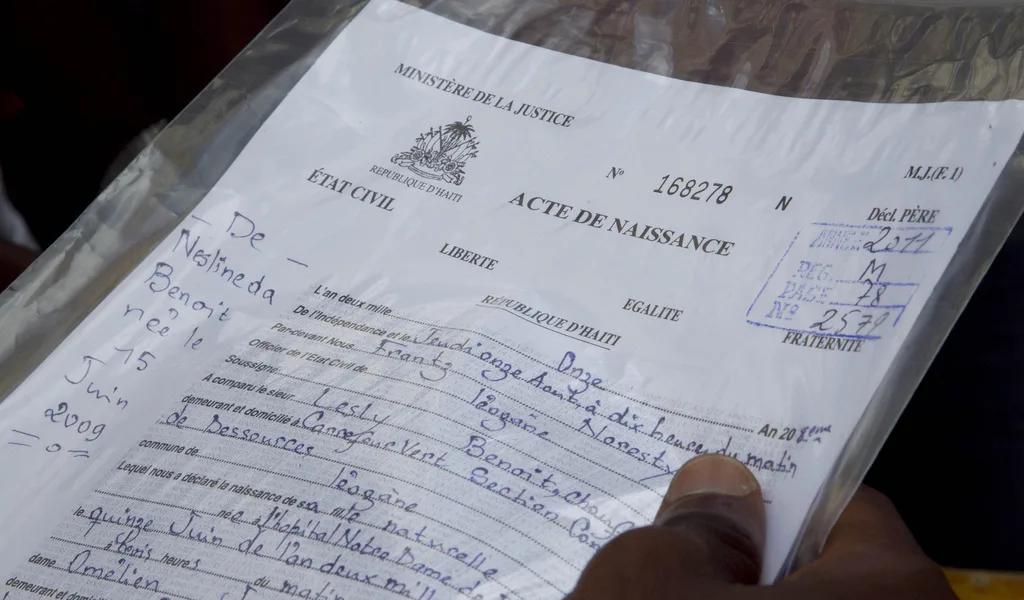 MINISTÈRE DE LA JUSTICE
RÉPUBLIQUE D'HAITI
ÉTAT CIVIL
Nº 168278 N
M.J.(F. 1)
ACTE DE NAISSANCE
Décl. PÈRE
ANNEE 2011
REG. M
PAGE 78
Nº 2579
LIBERTE
EGALITE
FRATERNITE
RÉPUBLIQUE D'HAITI
- De -
Neslineda
Benoit
née le
15
Juin
2009
= 0 =
L'an deux mille Onze
De l'Indépendance et le Jeudi onze Août, à dix heures du matin An 208ème
Par-devant Nous, Frantz Noresty
Officier de l'Etat Civil de léogâne
Soussigné
A comparu le sieur Lesly Benoit,
demeurant et domicilié à Carrefour Vert Section
de Dessources
commune de léogâne
Lequel nous a déclaré la naissance de sa fille naturelle
née à l'hôpital Notre Dame de
le quinze Juin de l'an deux mill
à trois heures du matin
dame Omélien
demeurant et domicilié